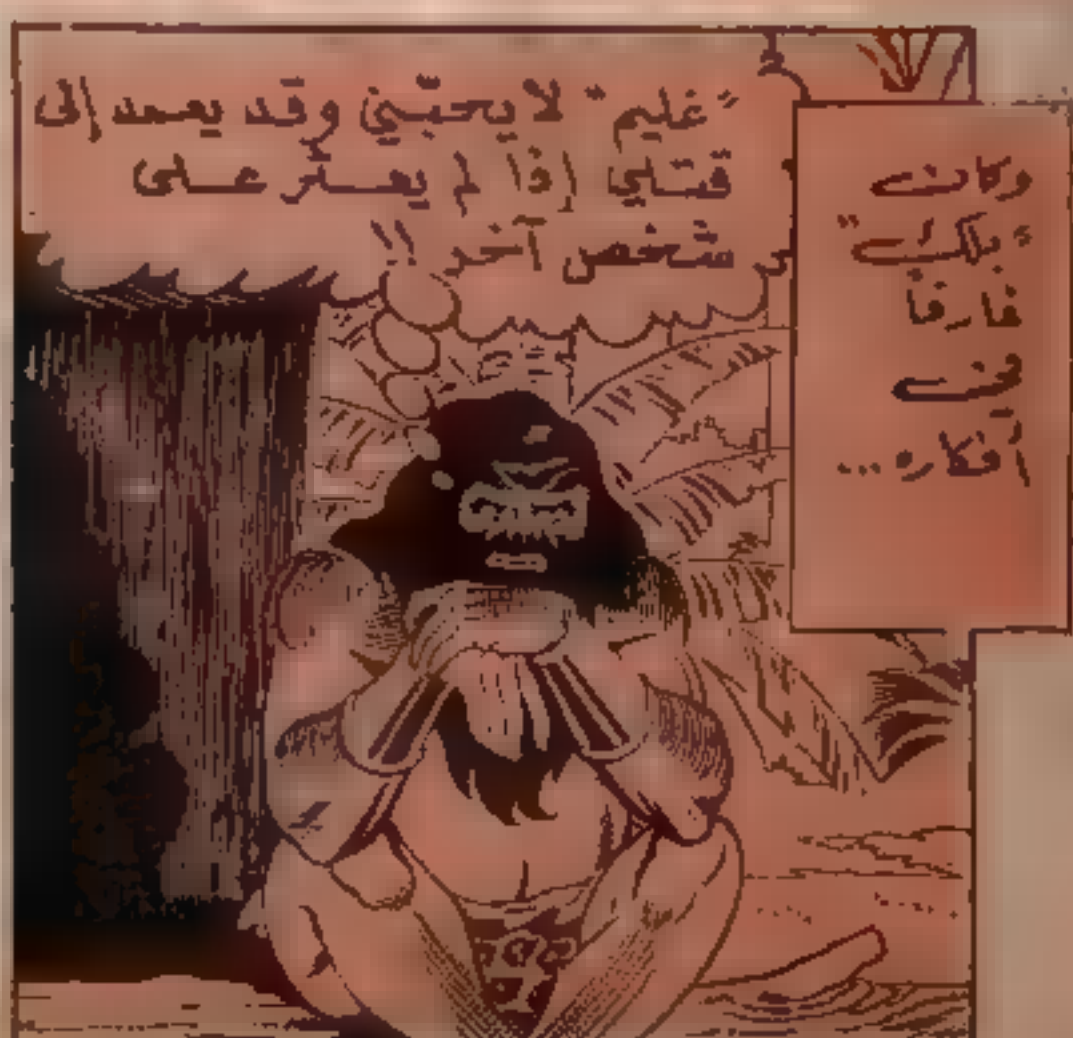 وكان
"بلك"
غارقاً
في
أفكاره...
"غليم" لا يحبّني وقد يعمد إلى
قتلي إذا لم يعثر على
شخص آخر !!